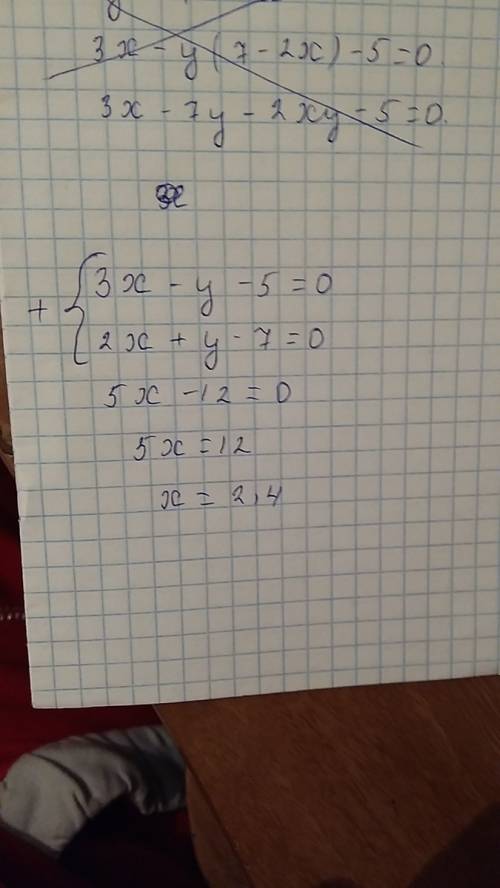 3x - y(7 - 2x) - 5 = 0
3x - 7y - 2xy - 5 = 0.
+ { 3x - y - 5 = 0
2x + y - 7 = 0
5x - 12 = 0
5x = 12
x = 2,4